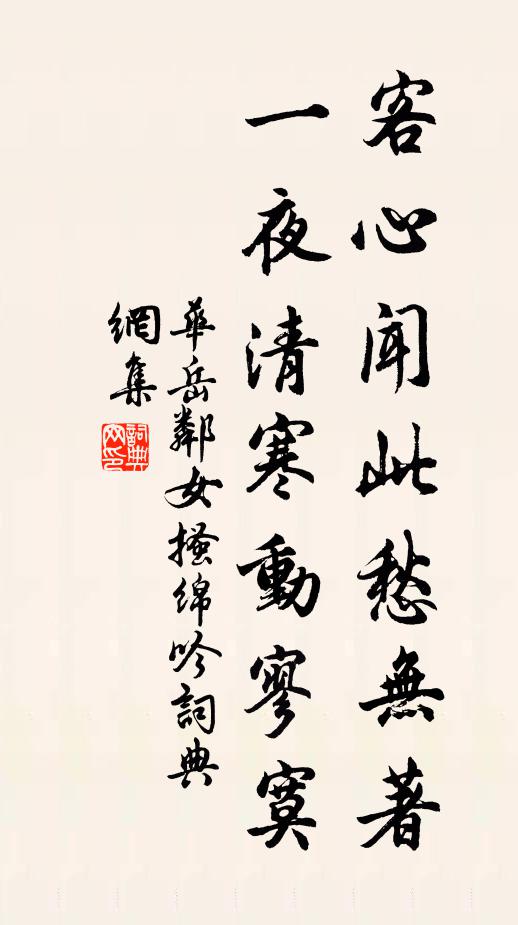 客心聞此愁無著
一夜清寒動寥寞
華岳鄰女搔綿吟詞典
網集
詞典網印